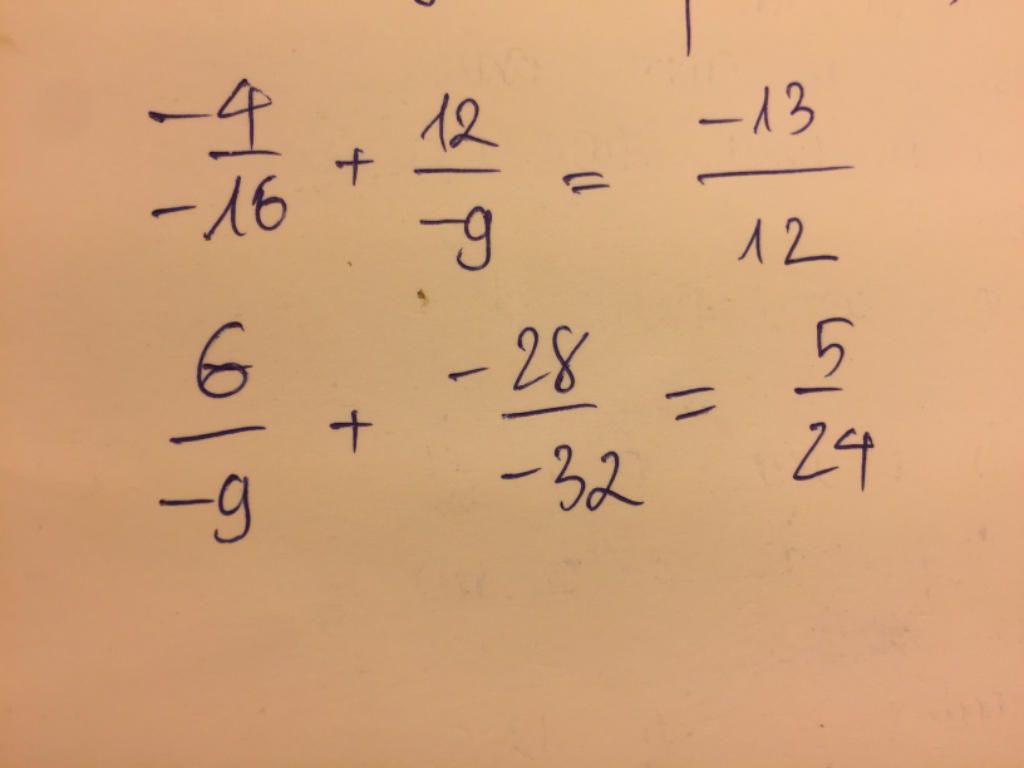 -4/-16 + 12/-9 = -13/12
6/-9 + -28/-32 = 5/24